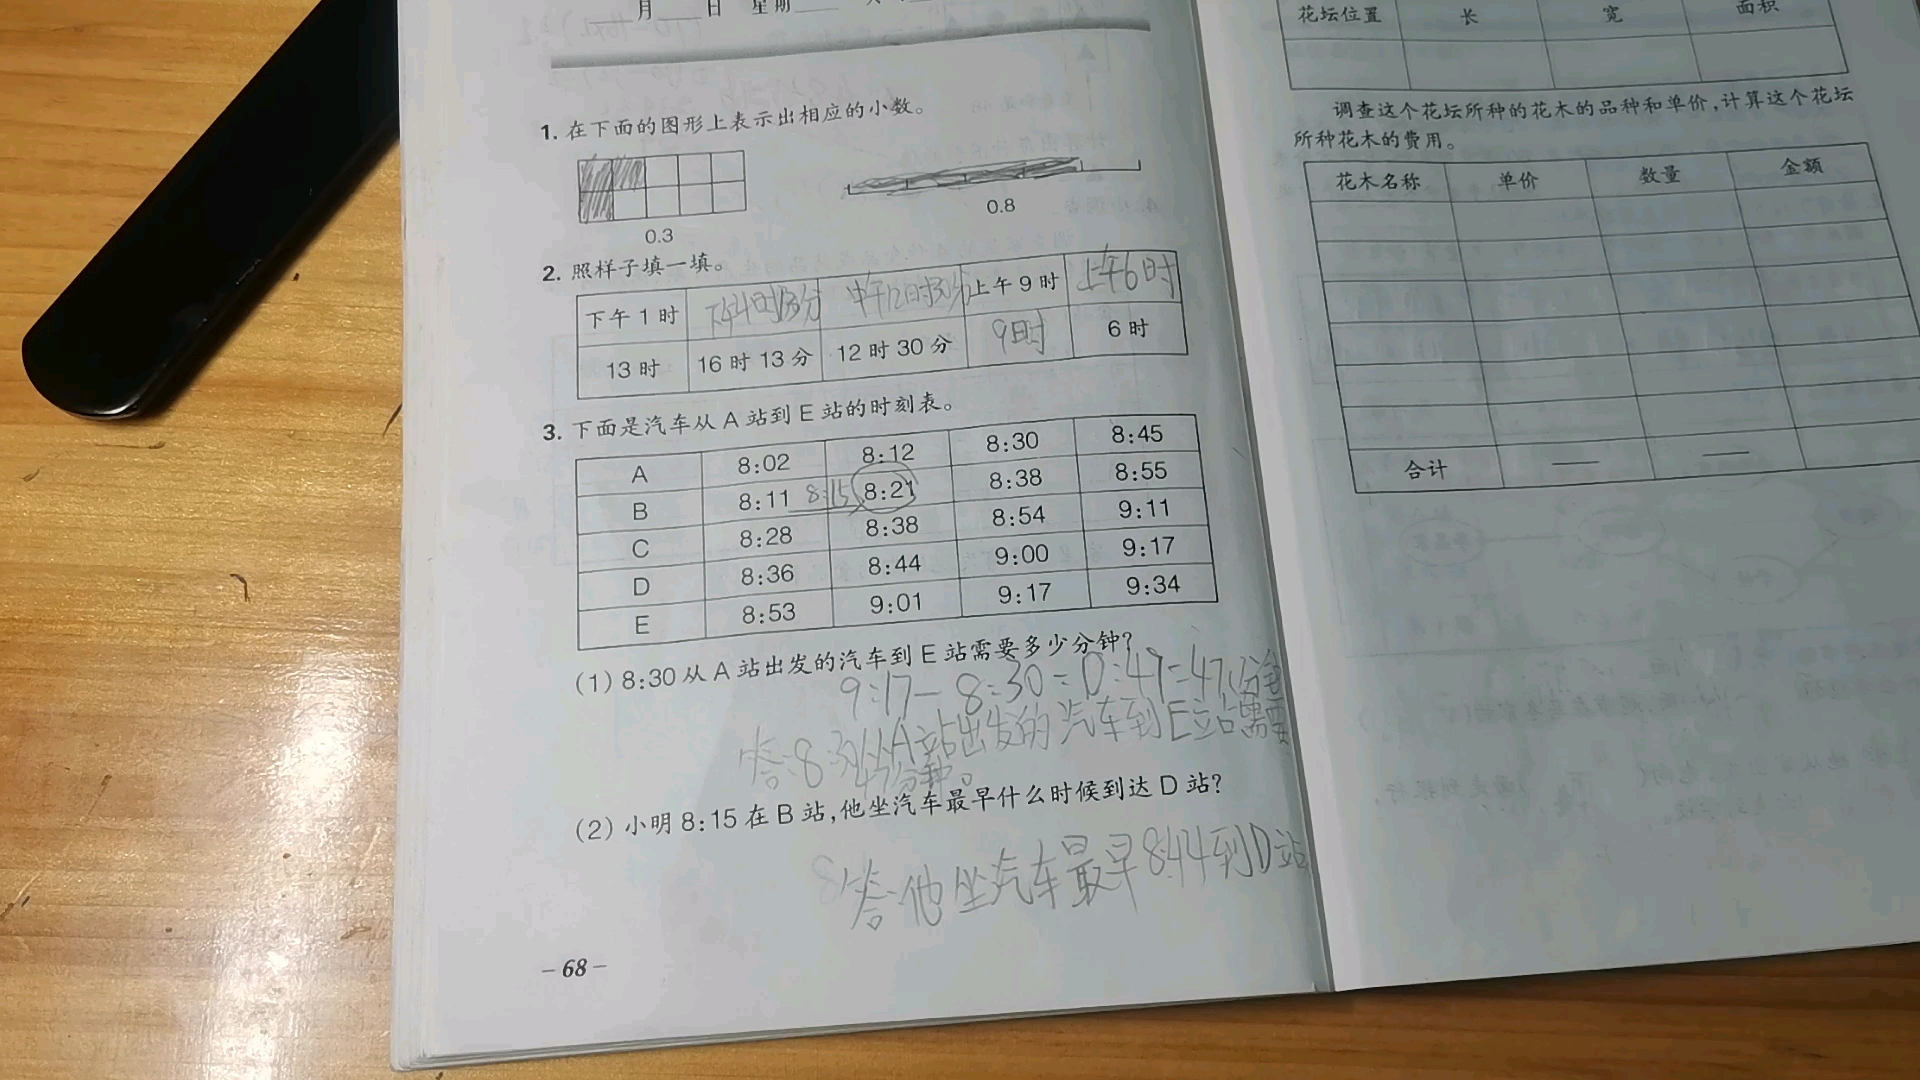 月 日 星期
1. 在下面的图形上表示出相应的小数。
0.3 0.8
2. 照样子填一填。
下午1时 下午4时13分 中午12时30分 上午9时 上午6时
13时 16时13分 12时30分 9时 6时
3. 下面是汽车从A站到E站的时刻表。
A 8:02 8:12 8:30 8:45
B 8:11 8:15 8:21 8:38 8:55
C 8:28 8:38 8:54 9:11
D 8:36 8:44 9:00 9:17
E 8:53 9:01 9:17 9:34
(1) 8:30从A站出发的汽车到E站需要多少分钟?
9:17-8:30=0:47=47(分钟
答:8:30从A站出发的汽车到E站需要
47分钟。
(2) 小明8:15在B站,他坐汽车最早什么时候到达D站?
答:他坐汽车最早8:44到D站
-68-
花坛位置 长 宽 面积
调查这个花坛所种的花木的品种和单价,计算这个花坛
所种花木的费用。
花木名称 单价 数量 金额
合计 — —